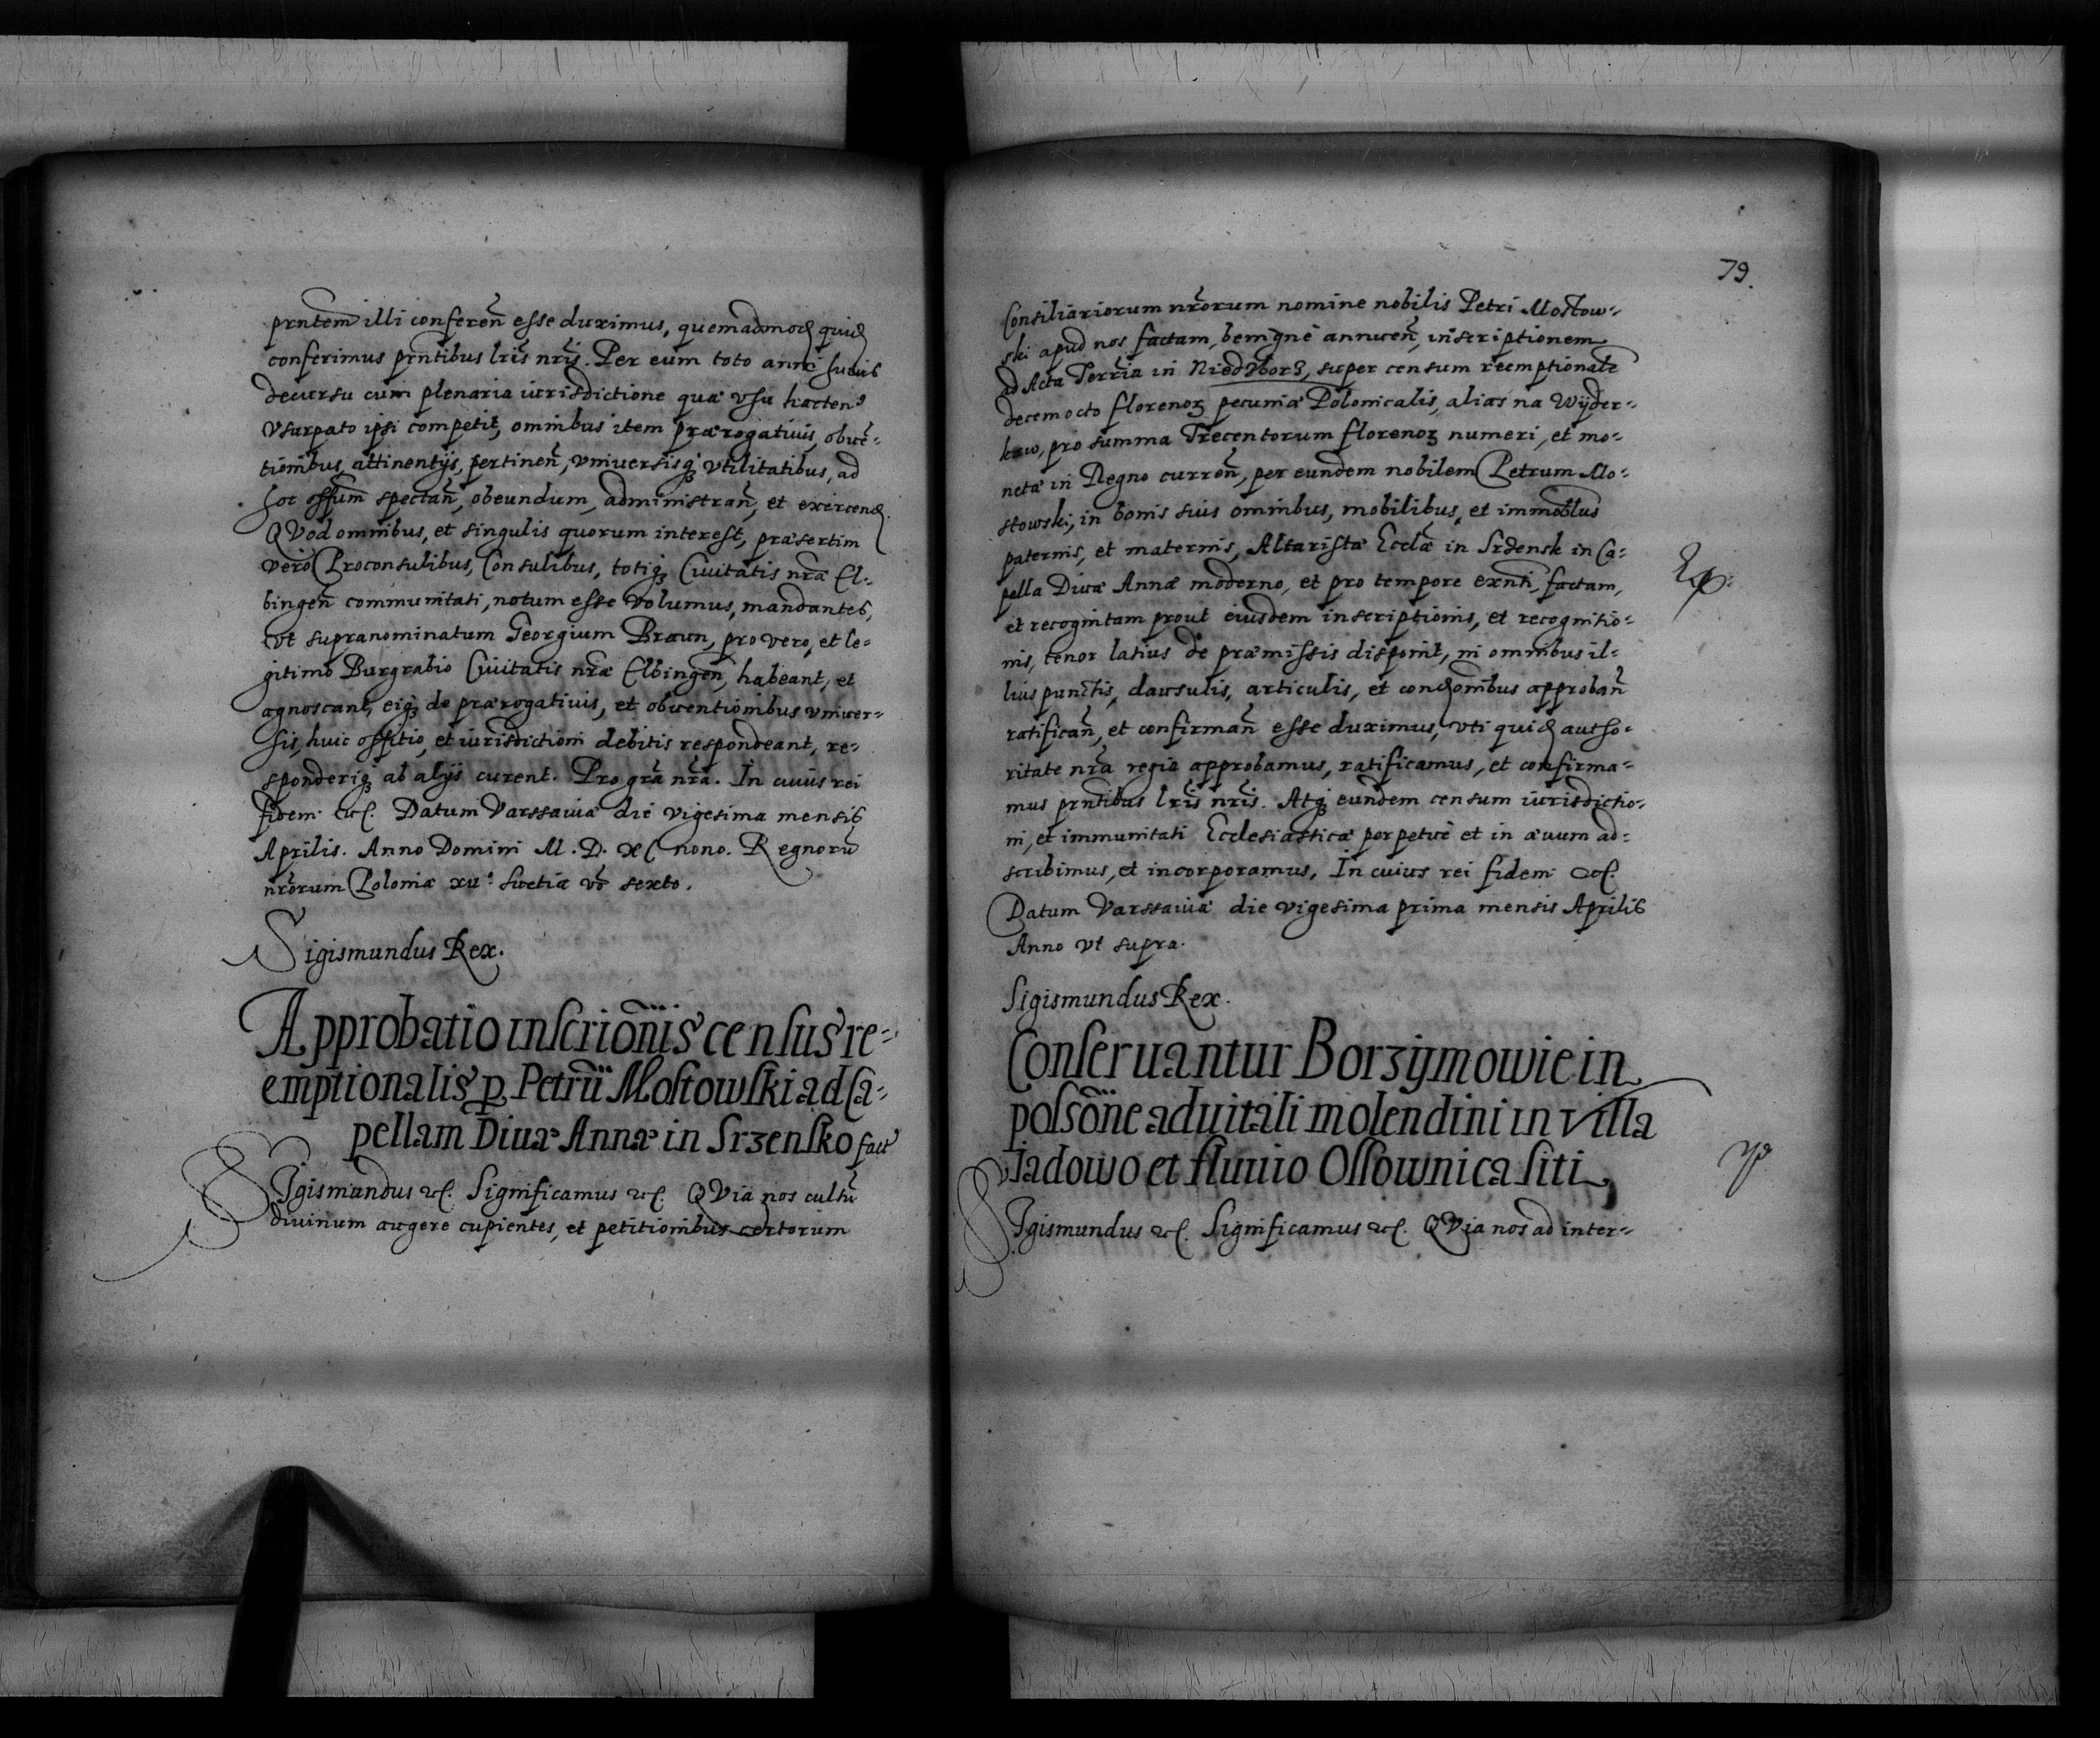 prntem illi conferen̄ esse duximus, quemadmod quid
conferimus prntibus lris nris. Per eum toto anni huius
decursu cum plenaria iurisdictione quæ vsu hacten9
vsurpato ipsi competit, omnibus item prærogatiuis, obue-
tionibus, attinentijs, pertinen̄, vniuersisq; vtilitatibus, ad
hoc offium spectan̄, obeundum, administran̄, et exercend.
QVod omnibus, et singulis quorum interest, præsertim
vero Proconsulibus, Consulibus, totiq; Ciuitatis nræ El-
bingen̄ communitati, notum esse volumus, mandantes,
vt supranominatum Georgium Braun, pro vero, et le-
gitimo Burgrabio Ciuitatis nræ Elbingen̄, habeant, et
agnoscant, eiq; de prærogatiuis, et obuentionibus vniuer-
sis, huic offitio, et iurisdictioni debitis respondeant, re-
sponderiq; ab alijs curent. Pro gra nra. In cuius rei
fidem &c. Datum Varssauiæ die vigesima mensis
Aprilis. Anno Domini M. D. XC nono. Regnorū
nrorum Poloniæ xii. Suetiæ vo sexto.
Sigismundus Rex.
Approbatio inscrionis census re-
emptionalis p Petrū Mostowski ad Ca-
pellam Diuæ Annæ in Srzensko fact
SIgismundus &c. Significamus &c. QVia nos cultū
diuinum augere cupientes, et petitionibus certorum
79.
Consiliariorum nrorum nomine nobilis Petri Mostow-
ski apud nos factam, benigne annuen̄, inscriptionem
ad Acta Terria in Niedzborz, super censum reemptionale
decemocto florenoꝝ pecuniæ Polonicalis, alias na Wyder-
kaw, pro summa Trecentorum florenoꝝ numeri, et mo-
netæ in Regno curren̄, per eundem nobilem Petrum Mo-
stowski, in bonis suis omnibus, mobilibus, et immoblus
paternis, et maternis, Altaristæ Ecclæ in Srzensk in Ca-
pella Diuæ Annæ moderno, et pro tempore exnti, factam,
et recognitam prout eiusdem inscriptionis, et recognitio-
nis, tenor latius de præmissis disponit, in omnibus il-
lius punctis, clausulis, articulis, et condonibus approban̄
ratifican̄, et confirman̄ esse duximus, vti quid autho-
ritate nra regia approbamus, ratificamus, et confirma-
mus prntibus lris nris. Atq; eundem censum iurisdictio-
ni, et immunitati Ecclesiasticæ perpetue et in æuum ad-
scribimus, et incorporamus. In cuius rei fidem &c.
Datum Varssauiæ die vigesima prima mensis Aprilis
Anno vt supra.
Sigismundus Rex.
Conseruantur Borzymowie in
possone aduitali molendini in Villa
Jadowo et fluuio Ossownica siti,
SIgismundus &c. Significamus &c. QVia nos ad inter-